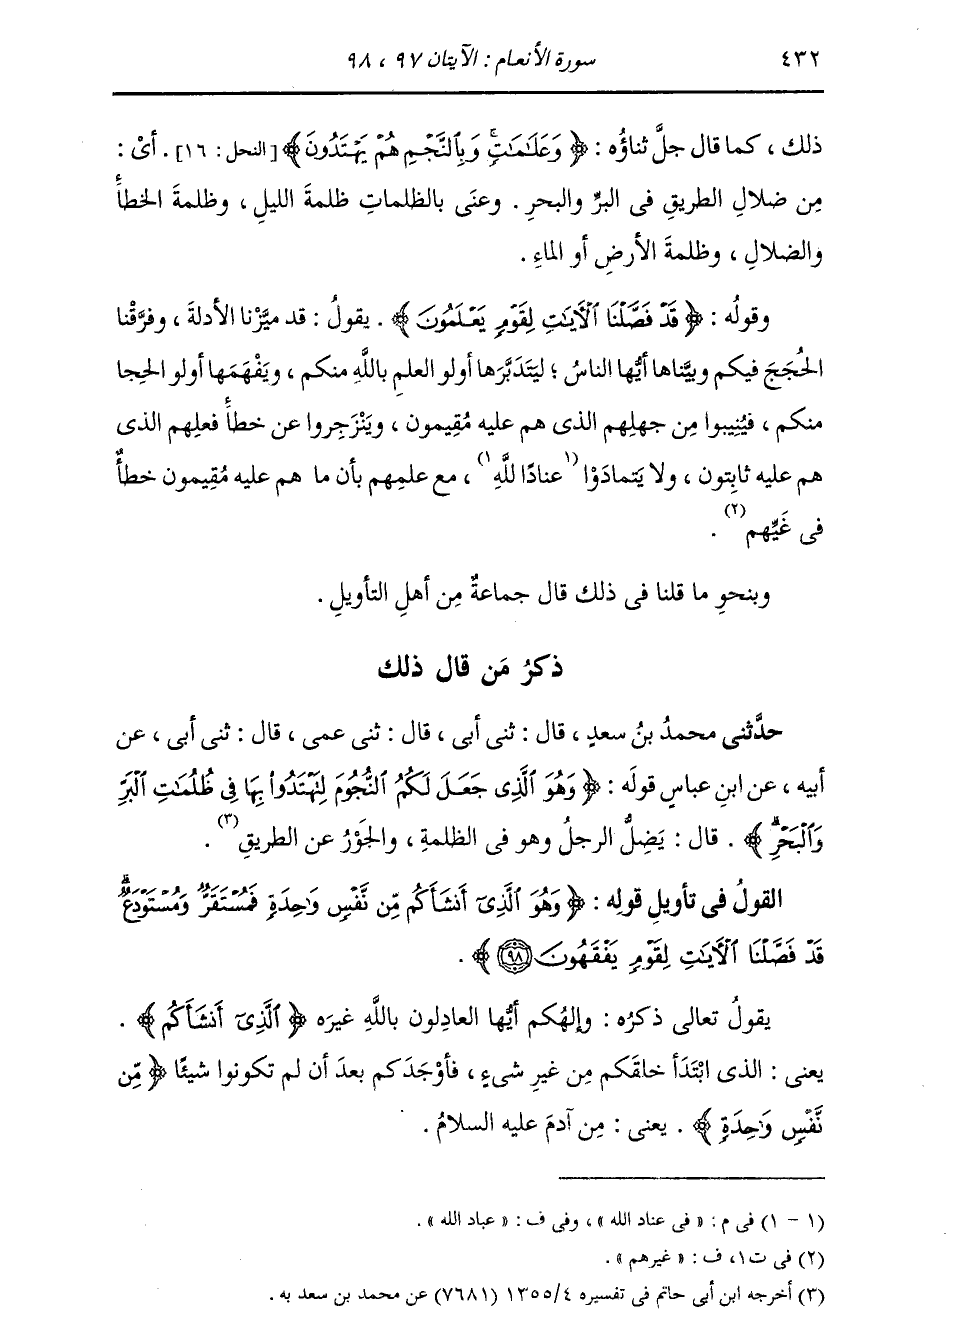 ٤٣٢ سورة الأنعام : الآيتان ٩٧ ، ٩٨
ذلك ، كما قال جلَّ ثناؤُه : ﴿ وَعَلَـٰمَـٰتٍۚ وَبِٱلنَّجْمِ هُمْ يَهْتَدُونَ ﴾ [ النحل : ١٦] . أىْ :
مِن ضلالِ الطريقِ فى البرِّ والبحرِ . وعنَى بالظلماتِ ظلمةَ الليلِ ، وظلمةَ الخطأَ
والضلالِ ، وظلمةَ الأرضِ أو الماءِ .
وقولُه : ﴿ قَدْ فَصَّلْنَا ٱلْآيَـٰتِ لِقَوْمٍ يَعْلَمُونَ ﴾ . يقولُ : قد ميَّزْنا الأدلةَ ، وفرَّقْنا
الحُجَجَ فيكم وبيَّناها أيُّها الناسُ ؛ ليَتَدَبَّرَها أولو العلمِ باللَّهِ منكم ، ويَفْهَمَها أولو الحِجا
منكم ، فيُنِيبوا مِن جهلِهم الذى هم عليه مُقِيمون ، ويَنْزَجِروا عن خطأَ فعلِهم الذى
هم عليه ثابِتون ، ولا يَتمادَوْا (١ عنادًا للَّهِ ١) ، مع علمِهم بأن ما هم عليه مُقِيمون خطأٌ
فى غَيِّهم (٢) .
وبنحوِ ما قلنا فى ذلك قال جماعةٌ مِن أهلِ التأويلِ .
ذكرُ مَن قال ذلك
حدَّثنى محمدُ بنُ سعدٍ ، قال : ثنى أبى ، قال : ثنى عمى ، قال : ثنى أبى ، عن
أبيه ، عن ابنِ عباسٍ قولَه : ﴿ وَهُوَ ٱلَّذِى جَعَلَ لَكُمُ ٱلنُّجُومَ لِتَهْتَدُوا۟ بِهَا فِى ظُلُمَـٰتِ ٱلْبَرِّ
وَٱلْبَحْرِۗ ﴾ . قال : يَضِلُّ الرجلُ وهو فى الظلمةِ ، والجَوْرُ عن الطريقِ (٣) .
القولُ فى تأويلِ قولِه : ﴿ وَهُوَ ٱلَّذِىٓ أَنشَأَكُم مِّن نَّفْسٍ وَٰحِدَةٍ فَمُسْتَقَرٌّ وَمُسْتَوْدَعٌۗ
قَدْ فَصَّلْنَا ٱلْآيَـٰتِ لِقَوْمٍ يَفْقَهُونَ ٩٨ ﴾ .
يقولُ تعالى ذكرُه : وإلهُكم أيُّها العادِلون باللَّهِ غيرَه ﴿ ٱلَّذِىٓ أَنشَأَكُم ﴾ .
يعنى : الذى ابْتَدَأ خلقَكم مِن غيرِ شىءٍ ، فأوْجَدَكم بعدَ أن لم تكونوا شيئًا ﴿ مِّن
نَّفْسٍ وَٰحِدَةٍ ﴾ . يعنى : مِن آدمَ عليه السلامُ .
(١ - ١) فى م : « فى عناد الله » ، وفى ف : « عباد الله » .
(٢) فى ت١، ف : « غيرهم » .
(٣) أخرجه ابن أبى حاتم فى تفسيره ١٣٥٥/٤ (٧٦٨١) عن محمد بن سعد به .